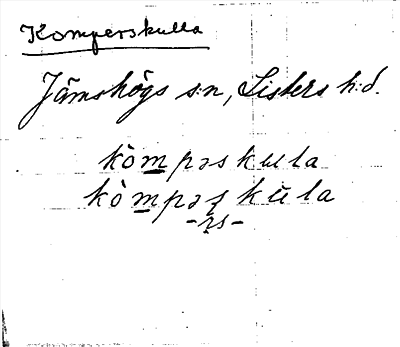 Komperskulla
Jämshögs s:n, Listers h:d.
kòmpəskula
kòmpəʂkŭla
-ʂs-